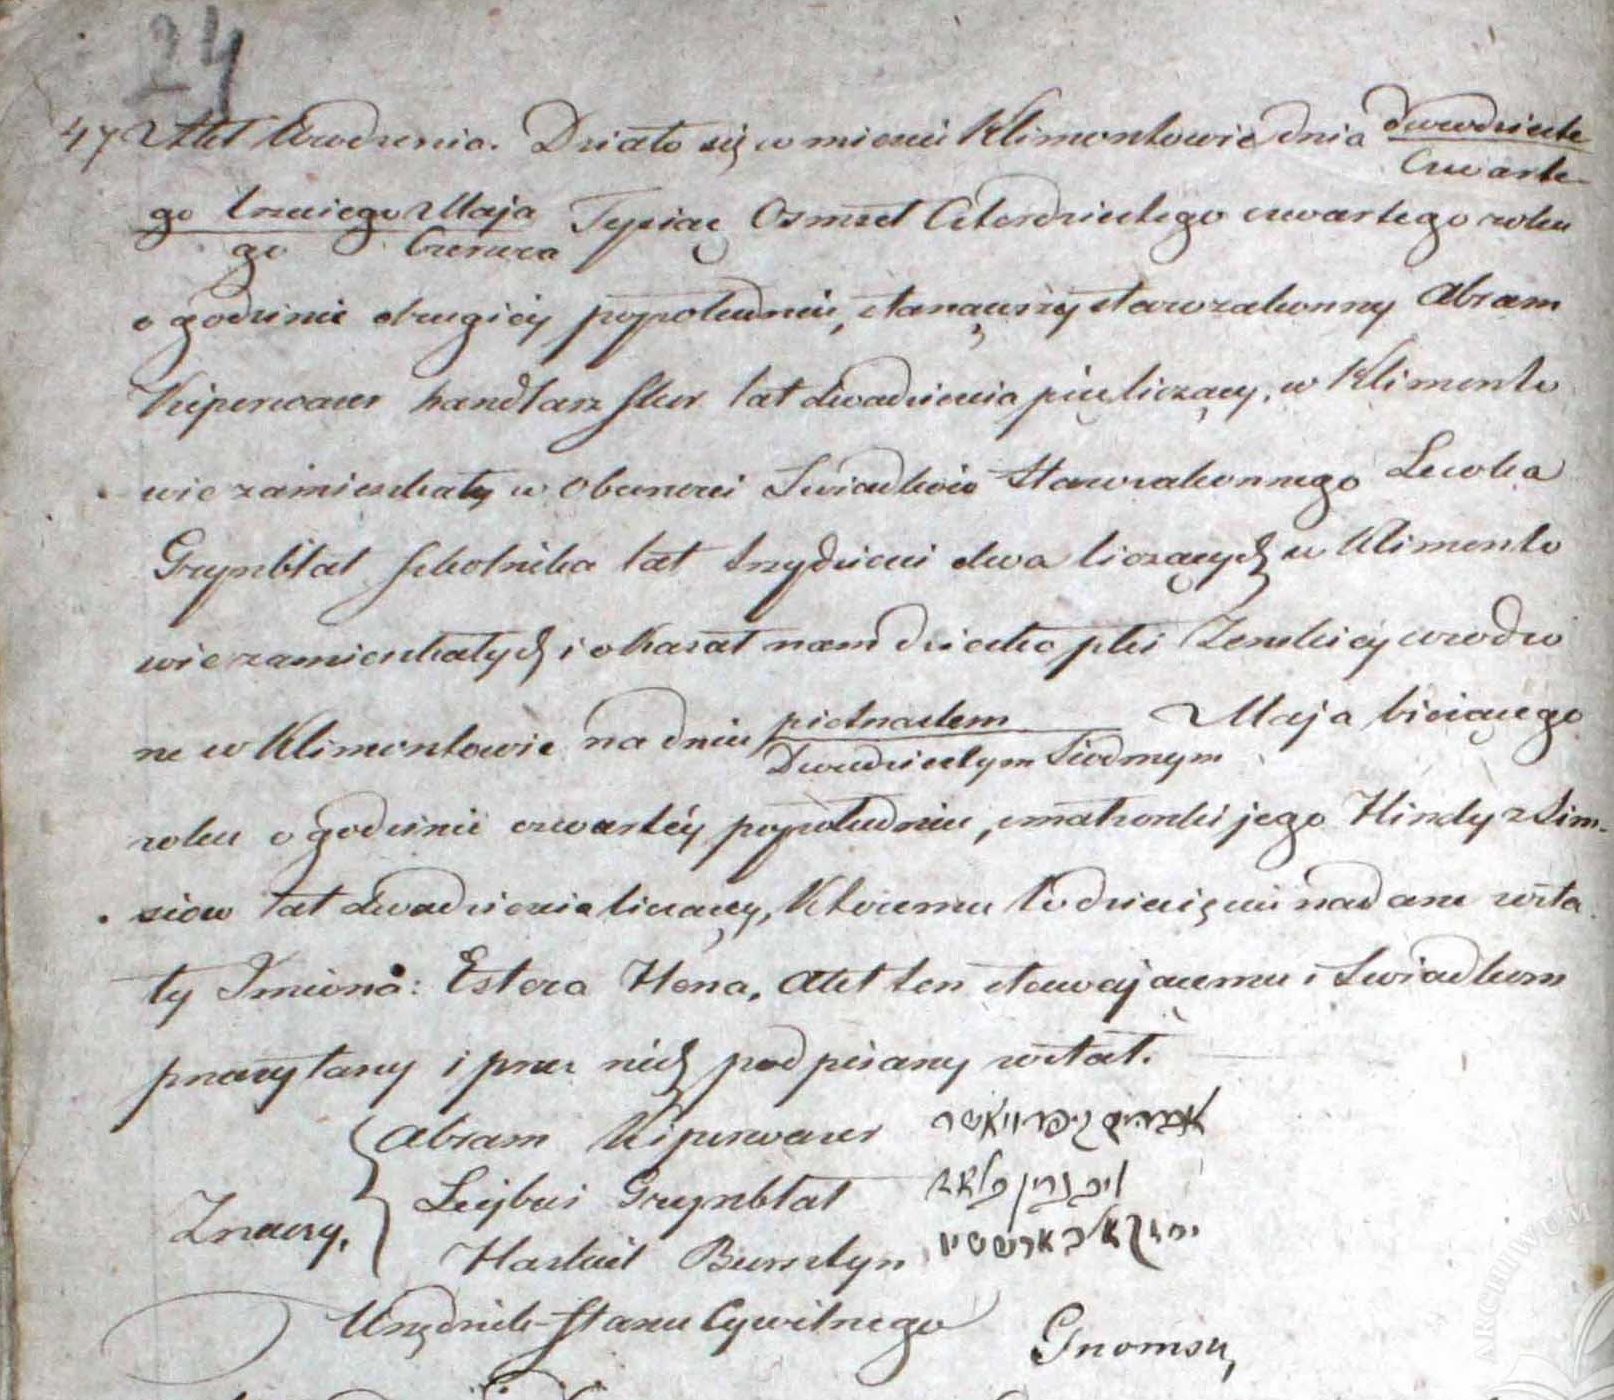 24
47 Akt Urodzenia. Działo się w mieście Klimontowie dnia dwudzieste
Czwarte
go trzeciego Maja Tysiąc Osmset Czterdziestego czwartego roku
go Czerwca
o godzinie drugiey popołudniu, stanąwszy starozakonny Abram
Kiperwaser handlarz skur lat dwadzieścia pięć liczący, w Klimonto
wie zamieszkały w obecności Swiadków Starozakonnego Lewka
Grynblat szkolnika lat trzydzieści dwa liczących w Klimonto
wie zamieszkałych i okazał nam dziecko płci Zenskiey urodzo
ne w Klimontowie na dniu pietnastem Maja bieżącego
Dwudziestym Siodmym
roku o godzinie czwartéy popołudniu, z małżonki jego Hindy z Sim-
siow lat dwadzieścia liczący, Któremu to dziecięciu nadane zosta
ty Imiona: Estera Hena, Akt ten stawającemu i Swiadkom
przeczytany i przez nich podpisany został.
Abram Kiperwaser
Leybuś Grynblat
Znaczy,
Haskiel Bursztyn
Urzędnik Stanu Cywilnego
ARCHIWUM